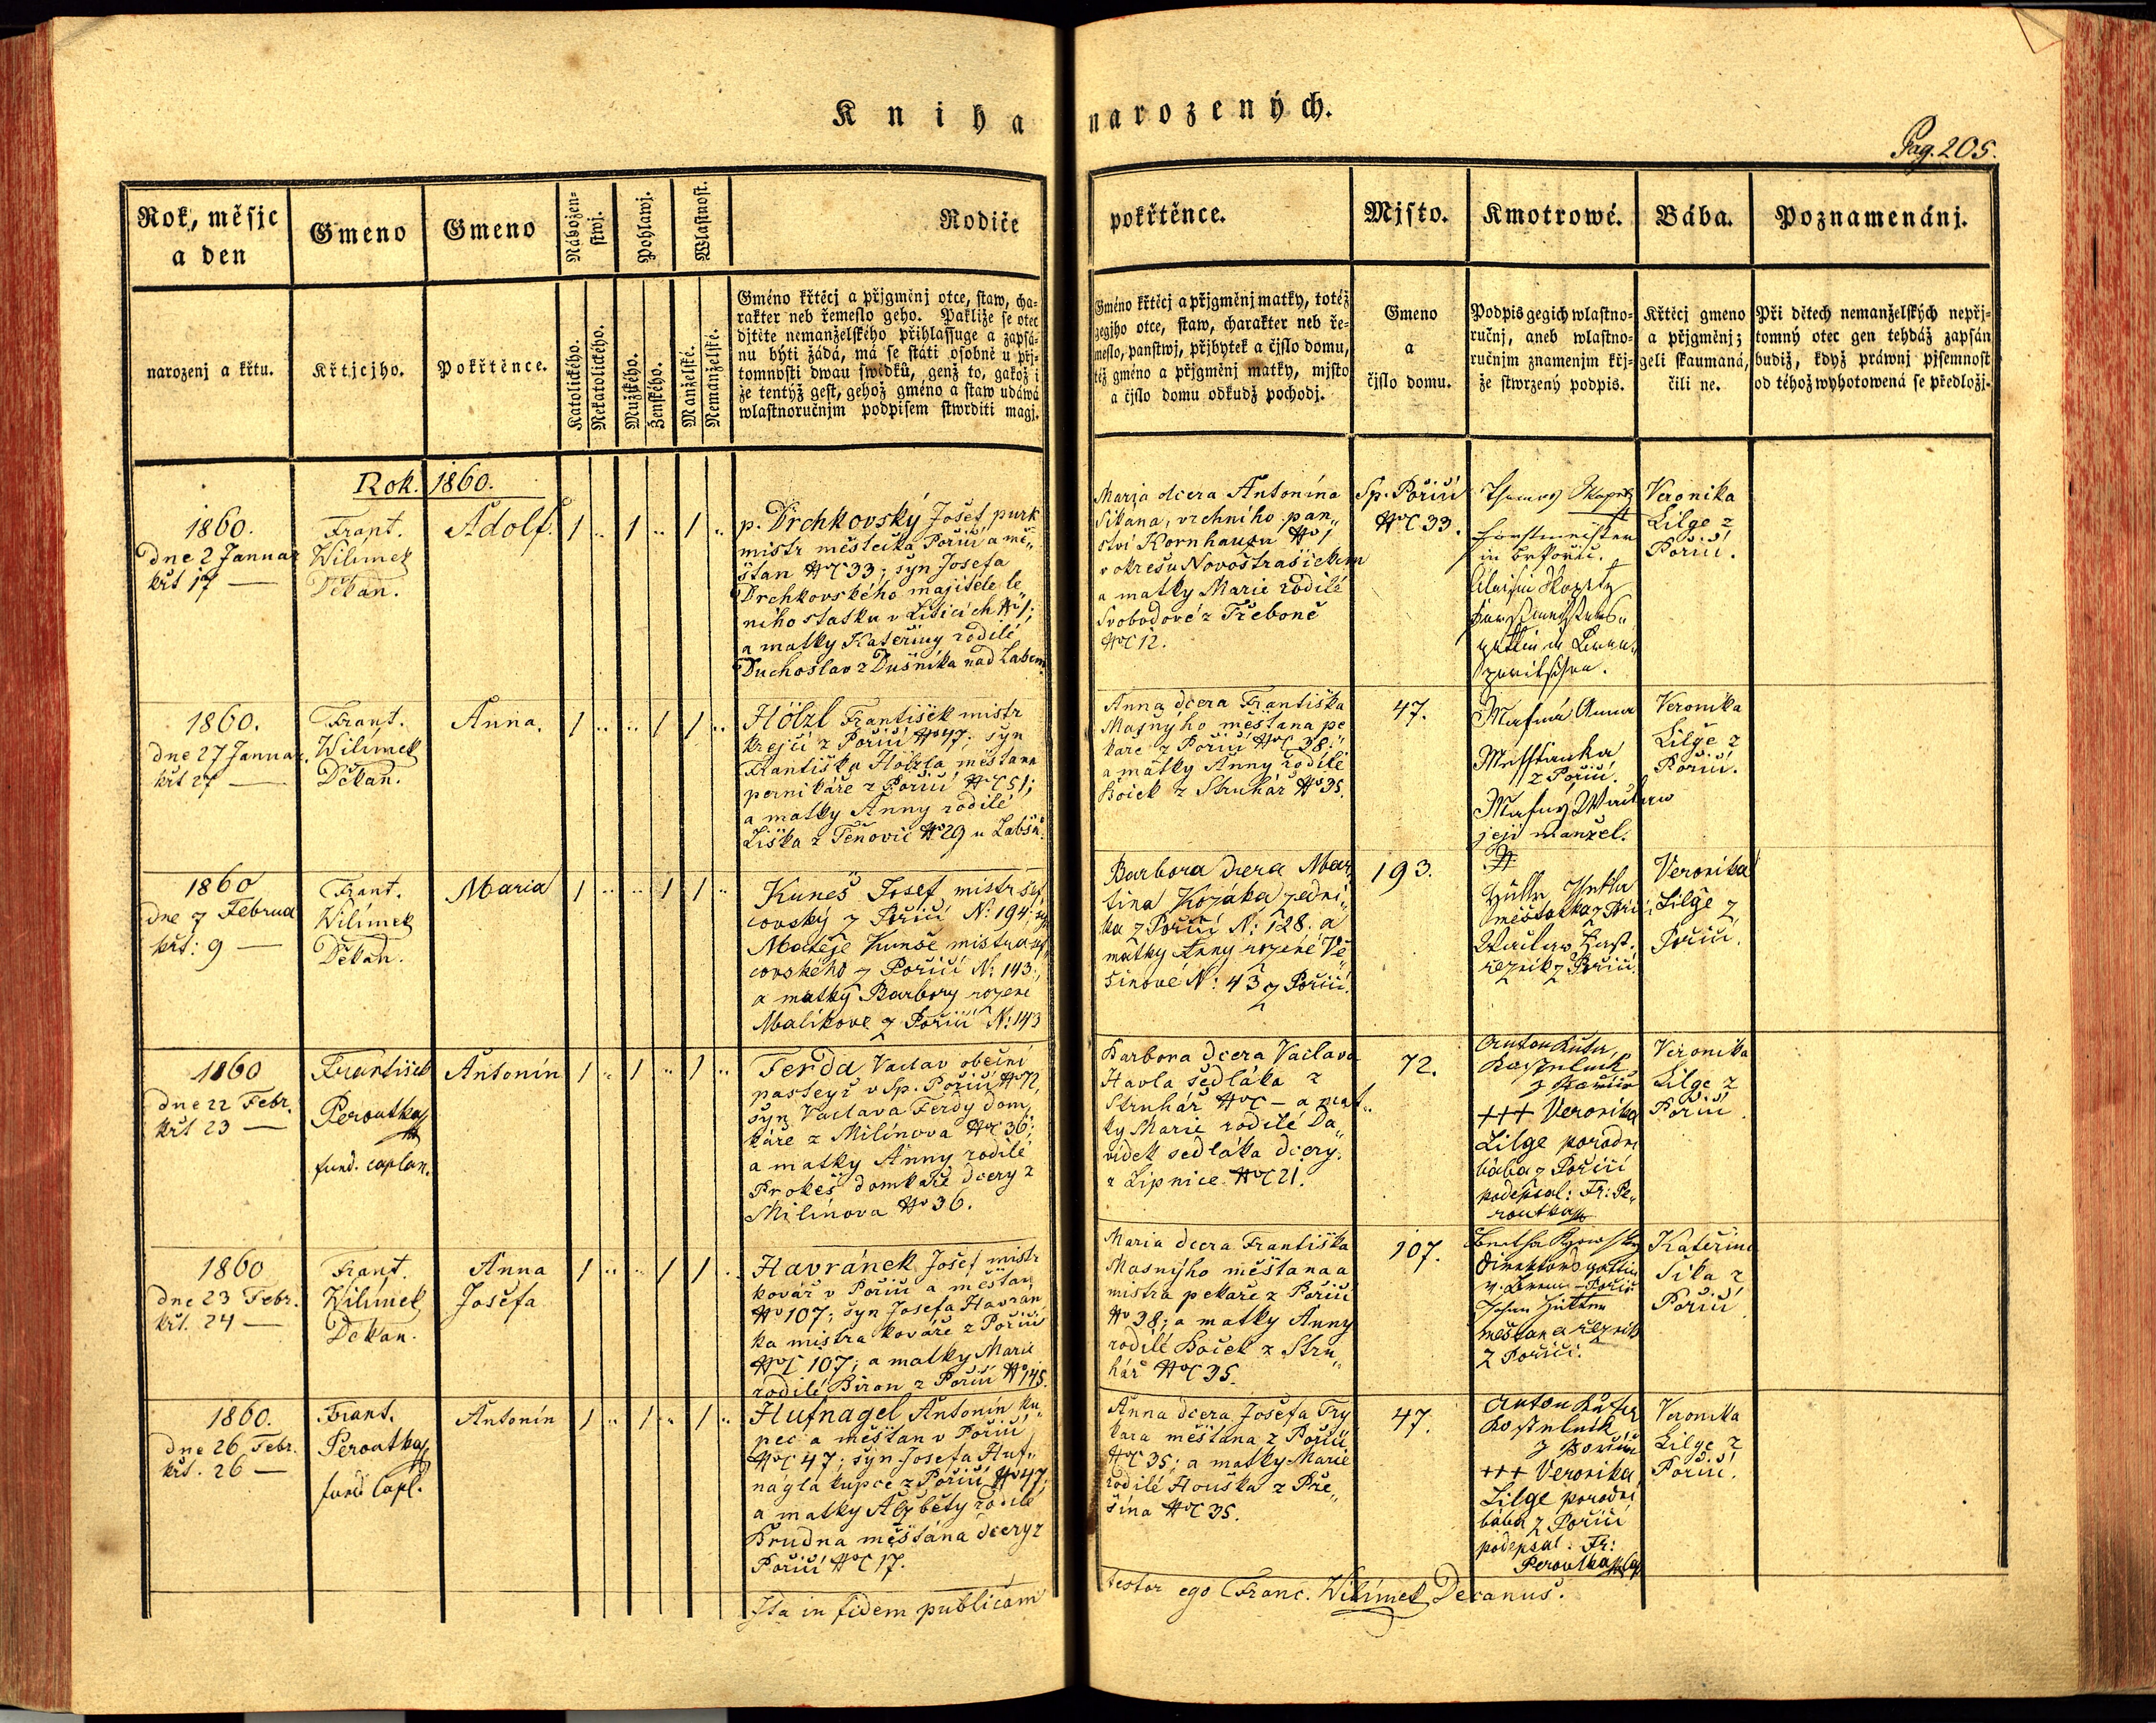 Kniha narozených.
Pag. 205.
Rok, měsjc
a den
narozenj a křtu.
Gmeno
Křtjcjho.
Gmeno
Pokřtěnce.
Nábožen=
stwj.
Katolického.
Nekatolického.
Pohlawj.
Mužského.
Ženského.
Wlastnost.
Manželské.
Nemanželské.
Rodiče
Gméno křtěcj a přjgměnj otce, staw, cha=
rakter neb řemeslo geho. Pakliže se otec
djtěte nemanželského přihlassuge a zapsá=
nu býti žádá, má se státi osobně u přj=
tomnosti dwau swědků, genž to, gakož i
že tentýž gest, gehož gméno a staw udáwá
wlastnoručnjm podpisem stwrditi magj.
pokřtěnce.
Gméno křtěcj a přjgměnj matky, totéž
gegjho otce, staw, charakter neb ře=
meslo, panstwj, přjbytek a čjslo domu,
též gméno a přjgměnj matky, mjsto
a čjslo domu odkudž pochodj.
Mjsto.
Gmeno
a
čjslo domu.
Kmotrowé.
Podpis gegich wlastno=
ručnj, aneb wlastno=
ručnjm znamenjm křj=
že stwrzený podpis.
Bába.
Křtěcj gmeno
a přjgměnj;
geli skaumaná,
čili ne.
Poznamenánj.
Při dětech nemanželských nepřj=
tomný otec gen tehdáž zapsán
budiž, když práwnj pjsemnost
od téhož wyhotowená se předložj.
Rok. 1860.
1860.
dne 2 Januar
křt 17 —
Frant.
Wilímek
Děkan.
Adolf.
1 .. 1 .. 1 ..
p. Drchkovský Josef purk
mistr městečka Poříčí a mě„
šťan NC 33; syn Josefa
Drchkovského majitele le„
ního statku v Liticích N 1;
a matky Kateřiny rodilé
Duchoslav z Dušníka nad Labem
Maria dcera Antonína
Sikána, vrchního pan„
ství Kornhauzu N 1
v okresu Novostrašickém
a matky Marie rodilé
Svobodové z Třeboně
NC 12.
Sp. Poříčí
NC 33.
Forstmeister
in Br Pořič.
Veronika
Lilge z
Poříčí.
1860.
dne 27 Januar.
křt 27 —
Frant.
Wilímek
Děkan.
Anna.
1 .. .. 1 1 ..
Hölzl František mistr
krejčí z Poříčí N 47; syn
Františka Hölzla měšťana
perníkáře z Poříčí NC 51;
a matky Anny rodilé
Liška z Tenovic N 29 u Labšn.
Anna dcera Františka
Masnýho měšťana pe
kaře z Poříčí NC 38;
a matky Anny rodilé
Boček z Struhař N 35.
47.
Masná Anna
Miesstanka
z Pořiči.
Masný Waclaw
její manžel.
Veronika
Lilge z
Poříčí.
1860
dne 7 Februa
křt: 9 —
Frant.
Wilímek
Děkan.
Maria
1 .. .. 1 1 ..
Kuneš Josef mistr šef
covský z Poříčí N: 194; syn
Matěje Kunše mistra šef
covského z Poříčí N: 143.,
a matky Barbory rozené
Malíkove z Poříčí N: 143
Barbora dcera Mar„
tina Kozáka zední„
ka z Poříčí N: 128. a
matky Anny rozené Ve„
šinové N: 43 z Poříčí.
193.
měštatka z Poříčí
Waclaw
reznik z Poříčí
Veronika
Lilge z
Poříčí.
1860
dne 22 Febr.
křt 23 —
František
Peroutka
fund. caplan.
Antonín
1 .. 1 .. 1 ..
Ferda Vaclav obecní
pasteyř v Sp. Poříčí N 72,
syn Vaclava Ferdy dom„
káře z Milínova NC 36;
a matky Anny rodilé
Prokeš domkáře dcery z
Milínova N 36.
Barbora dcera Vaclava
Havla sedláka z
Struhař NC — a mat„
ky Marie rodilé Da„
vídek sedláka dcery.
z Lipnice NC 21.
72.
Anton Kuter
Kostelnik
z Pořiči
+++ Veronika
Lilge porodní
bába z Poříčí
podepsal: Fr: Pe„
routka
Veronika
Lilge z
Poříčí.
1860
dne 23 Febr.
křt. 24 —
Frant.
Wilímek
Děkan.
Anna
Josefa
1 .. .. 1 1 ..
Havránek Josef mistr
kovář v Poříčí a měšťan
N 107; syn Josefa Havrán
ka mistra kováře z Poříčí
NC 107; a matky Marie
rodilé Biron z Poříčí N 145.
Maria dcera Františka
Masnýho měšťana a
mistra pekaře z Poříčí
N 38; a matky Anny
rodilé Boček z Stru„
hař NC 35.
107.
Direktorsgattin
Johan Hütter
mešťan a řezník
z Poříčí.
Kateřina
Sika z
Poříčí
1860.
dne 26 Febr.
křt. 26 —
Frant.
Peroutka
fund Capl.
Antonín
1 .. 1 .. 1 ..
Hufnagel Antonín ku„
pec a měšťan v Poříčí
NC 47; syn Josefa Huf„
nágla kupce z Poříčí N 47,
a matky Alžběty rodilé
Brudna měšťána dcery z
Poříčí NC 17.
Anna dcera Josefa Fry
kara měšťana z Poříčí
NC 35; a matky Marie
rodilé Houška z Pře„
šína NC 35.
47.
Anton Kuter
Kostelnik
z Pořiči
+++ Veronika
Lilge porodní
bába z Poříčí
podepsal: Fr:
Peroutka
Veronika
Lilge z
Poříčí.
Ita in fidem publicam testor ego Franc. Wilímek Decanus.